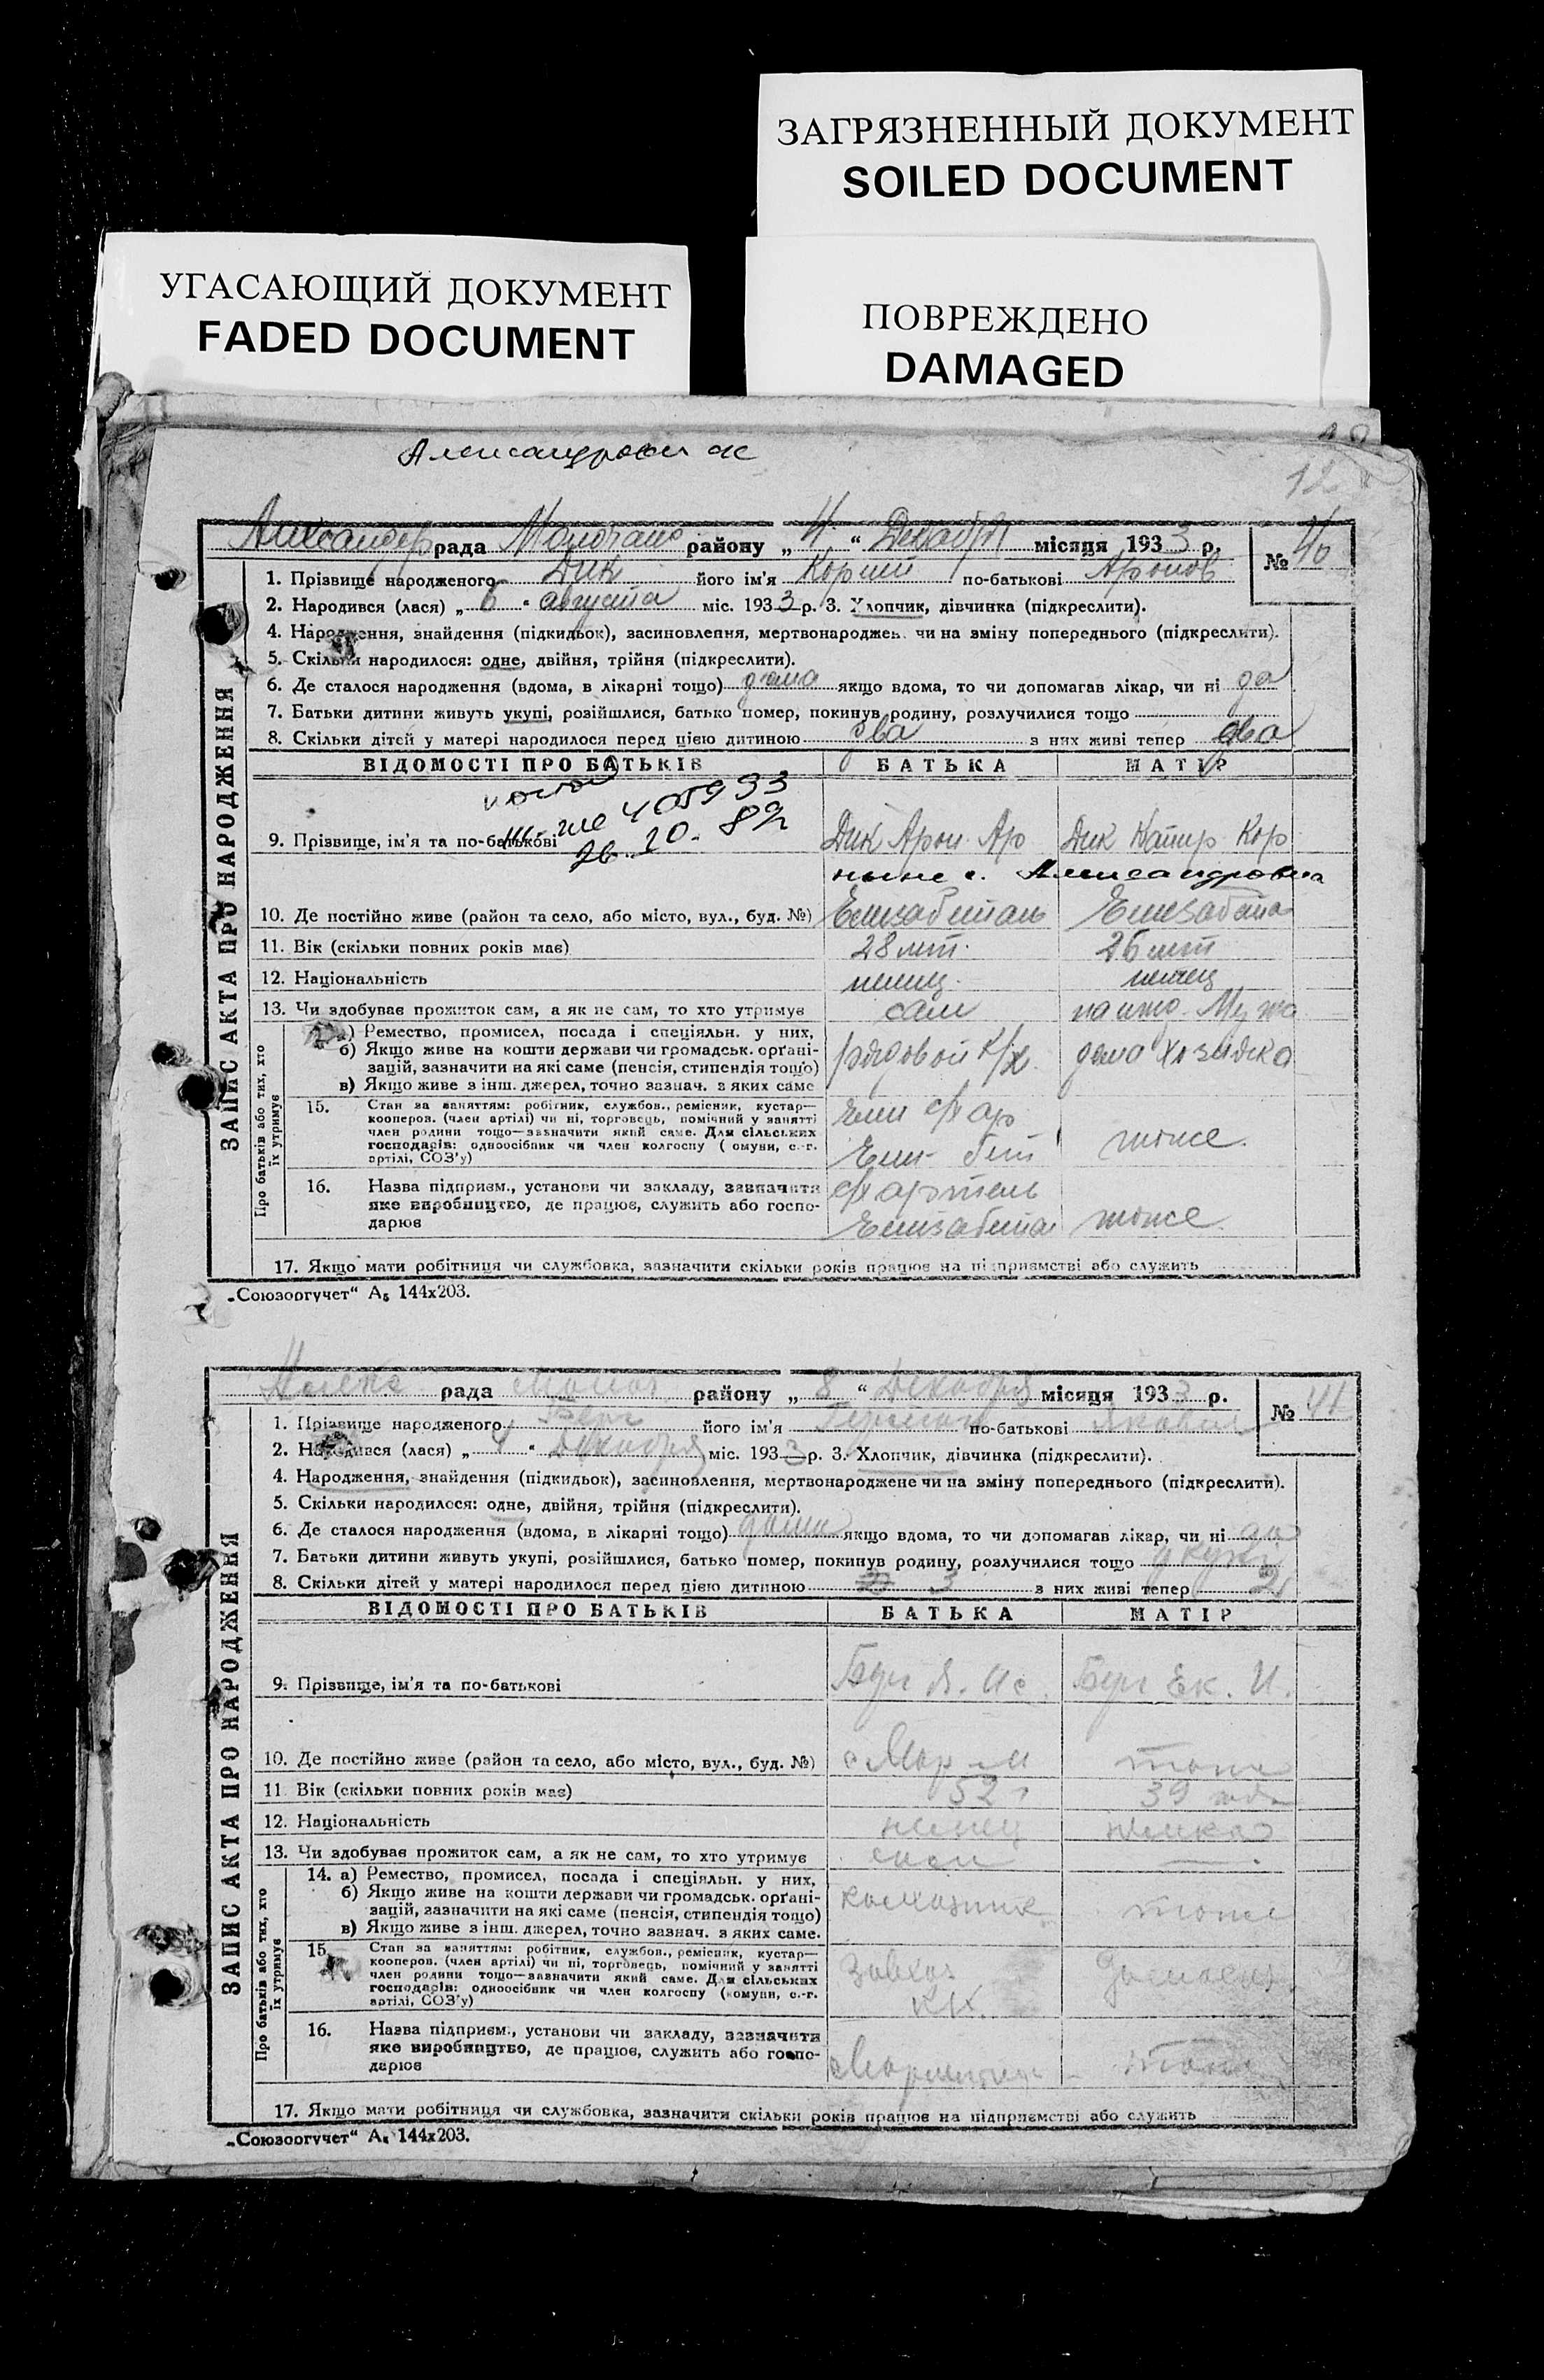 ЗАГРЯЗНЕННЫЙ ДОКУМЕНТ
SOILED DOCUMENT
УГАСАЮЩИЙ ДОКУМЕНТ
FADED DOCUMENT
ПОВРЕЖДЕНО
DAMAGED
12
рада Молочано району „ 4 “ Декабря місяця 1933 р.
№ 40
ЗАПИС АКТА ПРО НАРОДЖЕННЯ
1. Прізвище народженого Дик його ім'я Корний по-батькові Аронов
2. Народився (лася) „ 6 “ августа міс. 1933 р. 3. Хлопчик, дівчинка (підкреслити).
4. Народження, знайдення (підкидьок), засиновлення, мертвонароджен. чи на зміну попереднього (підкреслити).
5. Скільки народилося: одне, двійня, трійня (підкреслити).
6. Де сталося народження (вдома, в лікарні тощо) дома якщо вдома, то чи допомагав лікар, чи ні да
7. Батьки дитини живуть укупі, розійшлися, батько помер, покинув родину, розлучилися тощо
8. Скільки дітей у матері народилося перед цією дитиною два з них живі тепер два
ВІДОМОСТІ ПРО БАТЬКІВ БАТЬКА МАТІР
405933
26.10.89
9. Прізвище, ім'я та по-батькові Дик Арон Аро Дик Катир Кор
ныне с. Александровка
10. Де постійно живе (район та село, або місто, вул., буд. №) Елизабеталь Елизабета
11. Вік (скільки повних років має) 28 лет 26 лет
12. Національність немец немец
13. Чи здобуває прожиток сам, а як не сам, то хто утримує сам на ижд. Мужа
Про батьків або тих, хто їх утримує
а) Ремество, промисел, посада і спеціяльн. у них,
б) Якщо живе на кошти держави чи громадськ. орґані-
зацій, зазначити на які саме (пенсія, стипендія тощо) рядовой к/х дома хозяйка
в) Якщо живе з інш. джерел, точно зазнач. з яких саме
15. Стан за заняттям: робітник, службов., ремісник, кустар—
кооперов. (член артілі) чи ні, торговець, помічний у занятті
член родини тощо—зазначити який саме. Для сільських
господарів: одноосібник чи член колгоспу (комуни, с.-г.
артілі, СОЗ'у) тоже
16. Назва підприєм., установи чи закладу, зазначити с/х артель
яке виробництво, де працює, служить або госпо-
дарює Елизабета тоже
17. Якщо мати робітниця чи службовка, зазначити скільки років працює на підприємстві або служить
„Союзоргучет“ А₅ 144х203.
рада Молоч району „ 8 “ Декабря місяця 1933 р.
№ 41
ЗАПИС АКТА ПРО НАРОДЖЕННЯ
1. Прізвище народженого Берг його ім'я Герман по-батькові Яковл
2. Народився (лася) „ “ Декабря міс. 1933 р. 3. Хлопчик, дівчинка (підкреслити).
4. Народження, знайдення (підкидьок), засиновлення, мертвонароджене чи на зміну попереднього (підкреслити).
5. Скільки народилося: одне, двійня, трійня (підкреслити).
6. Де сталося народження (вдома, в лікарні тощо) дома якщо вдома, то чи допомагав лікар, чи ні да
7. Батьки дитини живуть укупі, розійшлися, батько помер, покинув родину, розлучилися тощо укупі
8. Скільки дітей у матері народилося перед цією дитиною 3 з них живі тепер 2
ВІДОМОСТІ ПРО БАТЬКІВ БАТЬКА МАТІР
9. Прізвище, ім'я та по-батькові Берг Я. Ис. Берг Ек. И.
10. Де постійно живе (район та село, або місто, вул., буд. №) тоже
11 Вік (скільки повних років має) 52 39
12. Національність немец немка
13. Чи здобуває прожиток сам, а як не сам, то хто утримує сам —
Про батьків або тих, хто їх утримує
14. а) Ремество, промисел, посада і спеціяльн. у них,
б) Якщо живе на кошти держави чи громадськ. орґані-
зацій, зазначити на які саме (пенсія, стипендія тощо) колхозник тоже
в) Якщо живе з інш. джерел, точно зазнач. з яких саме.
15. Стан за заняттям: робітник, службов., ремісник, кустар—
кооперов. (член артілі) чи ні, торговець, помічний у занятті
член родини тощо—зазначити який саме. Для сільських завхоз
господарів: одноосібник чи член колгоспу (комуни, с.-г.
артілі, СОЗ'у) к/х.
16. Назва підприєм., установи чи закладу, зазначити
яке виробництво, де працює, служить або госпо-
дарює тоже
17. Якщо мати робітниця чи службовка, зазначити скільки років працює на підприємстві або служить
„Союзоргучет“ А₅ 144х203.